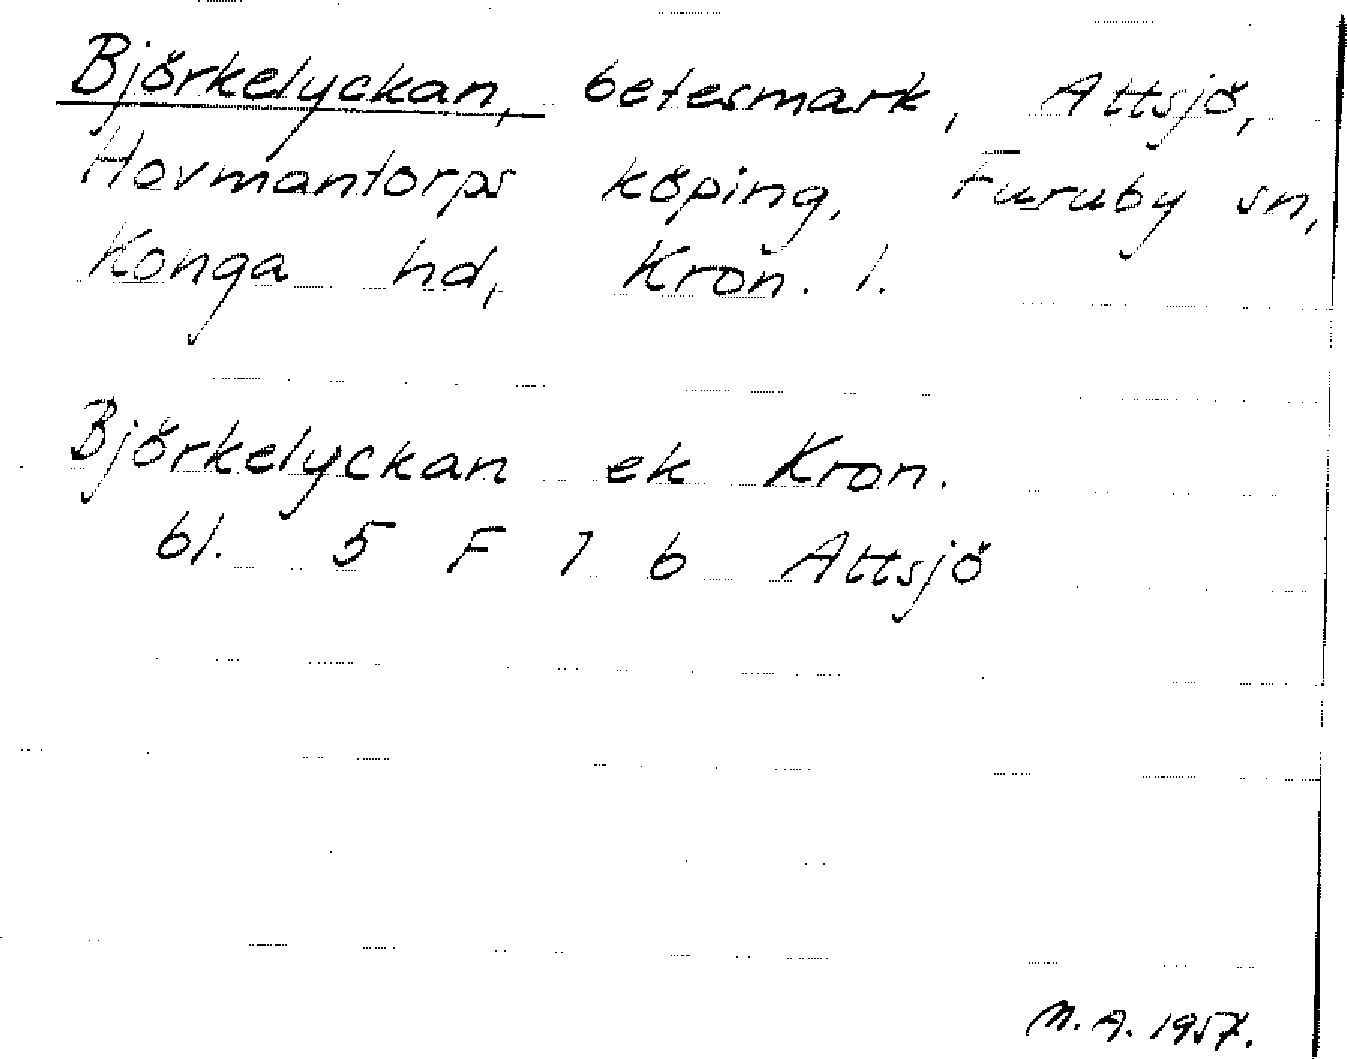 Björkelyckan, betesmark, Attsjö,
Hovmantorps köping, Furuby sn,
Konga hd, Kron. l.
Björkelyckan ek Kron.
bl. 5 F 7 b Attsjö
M. A. 1957.